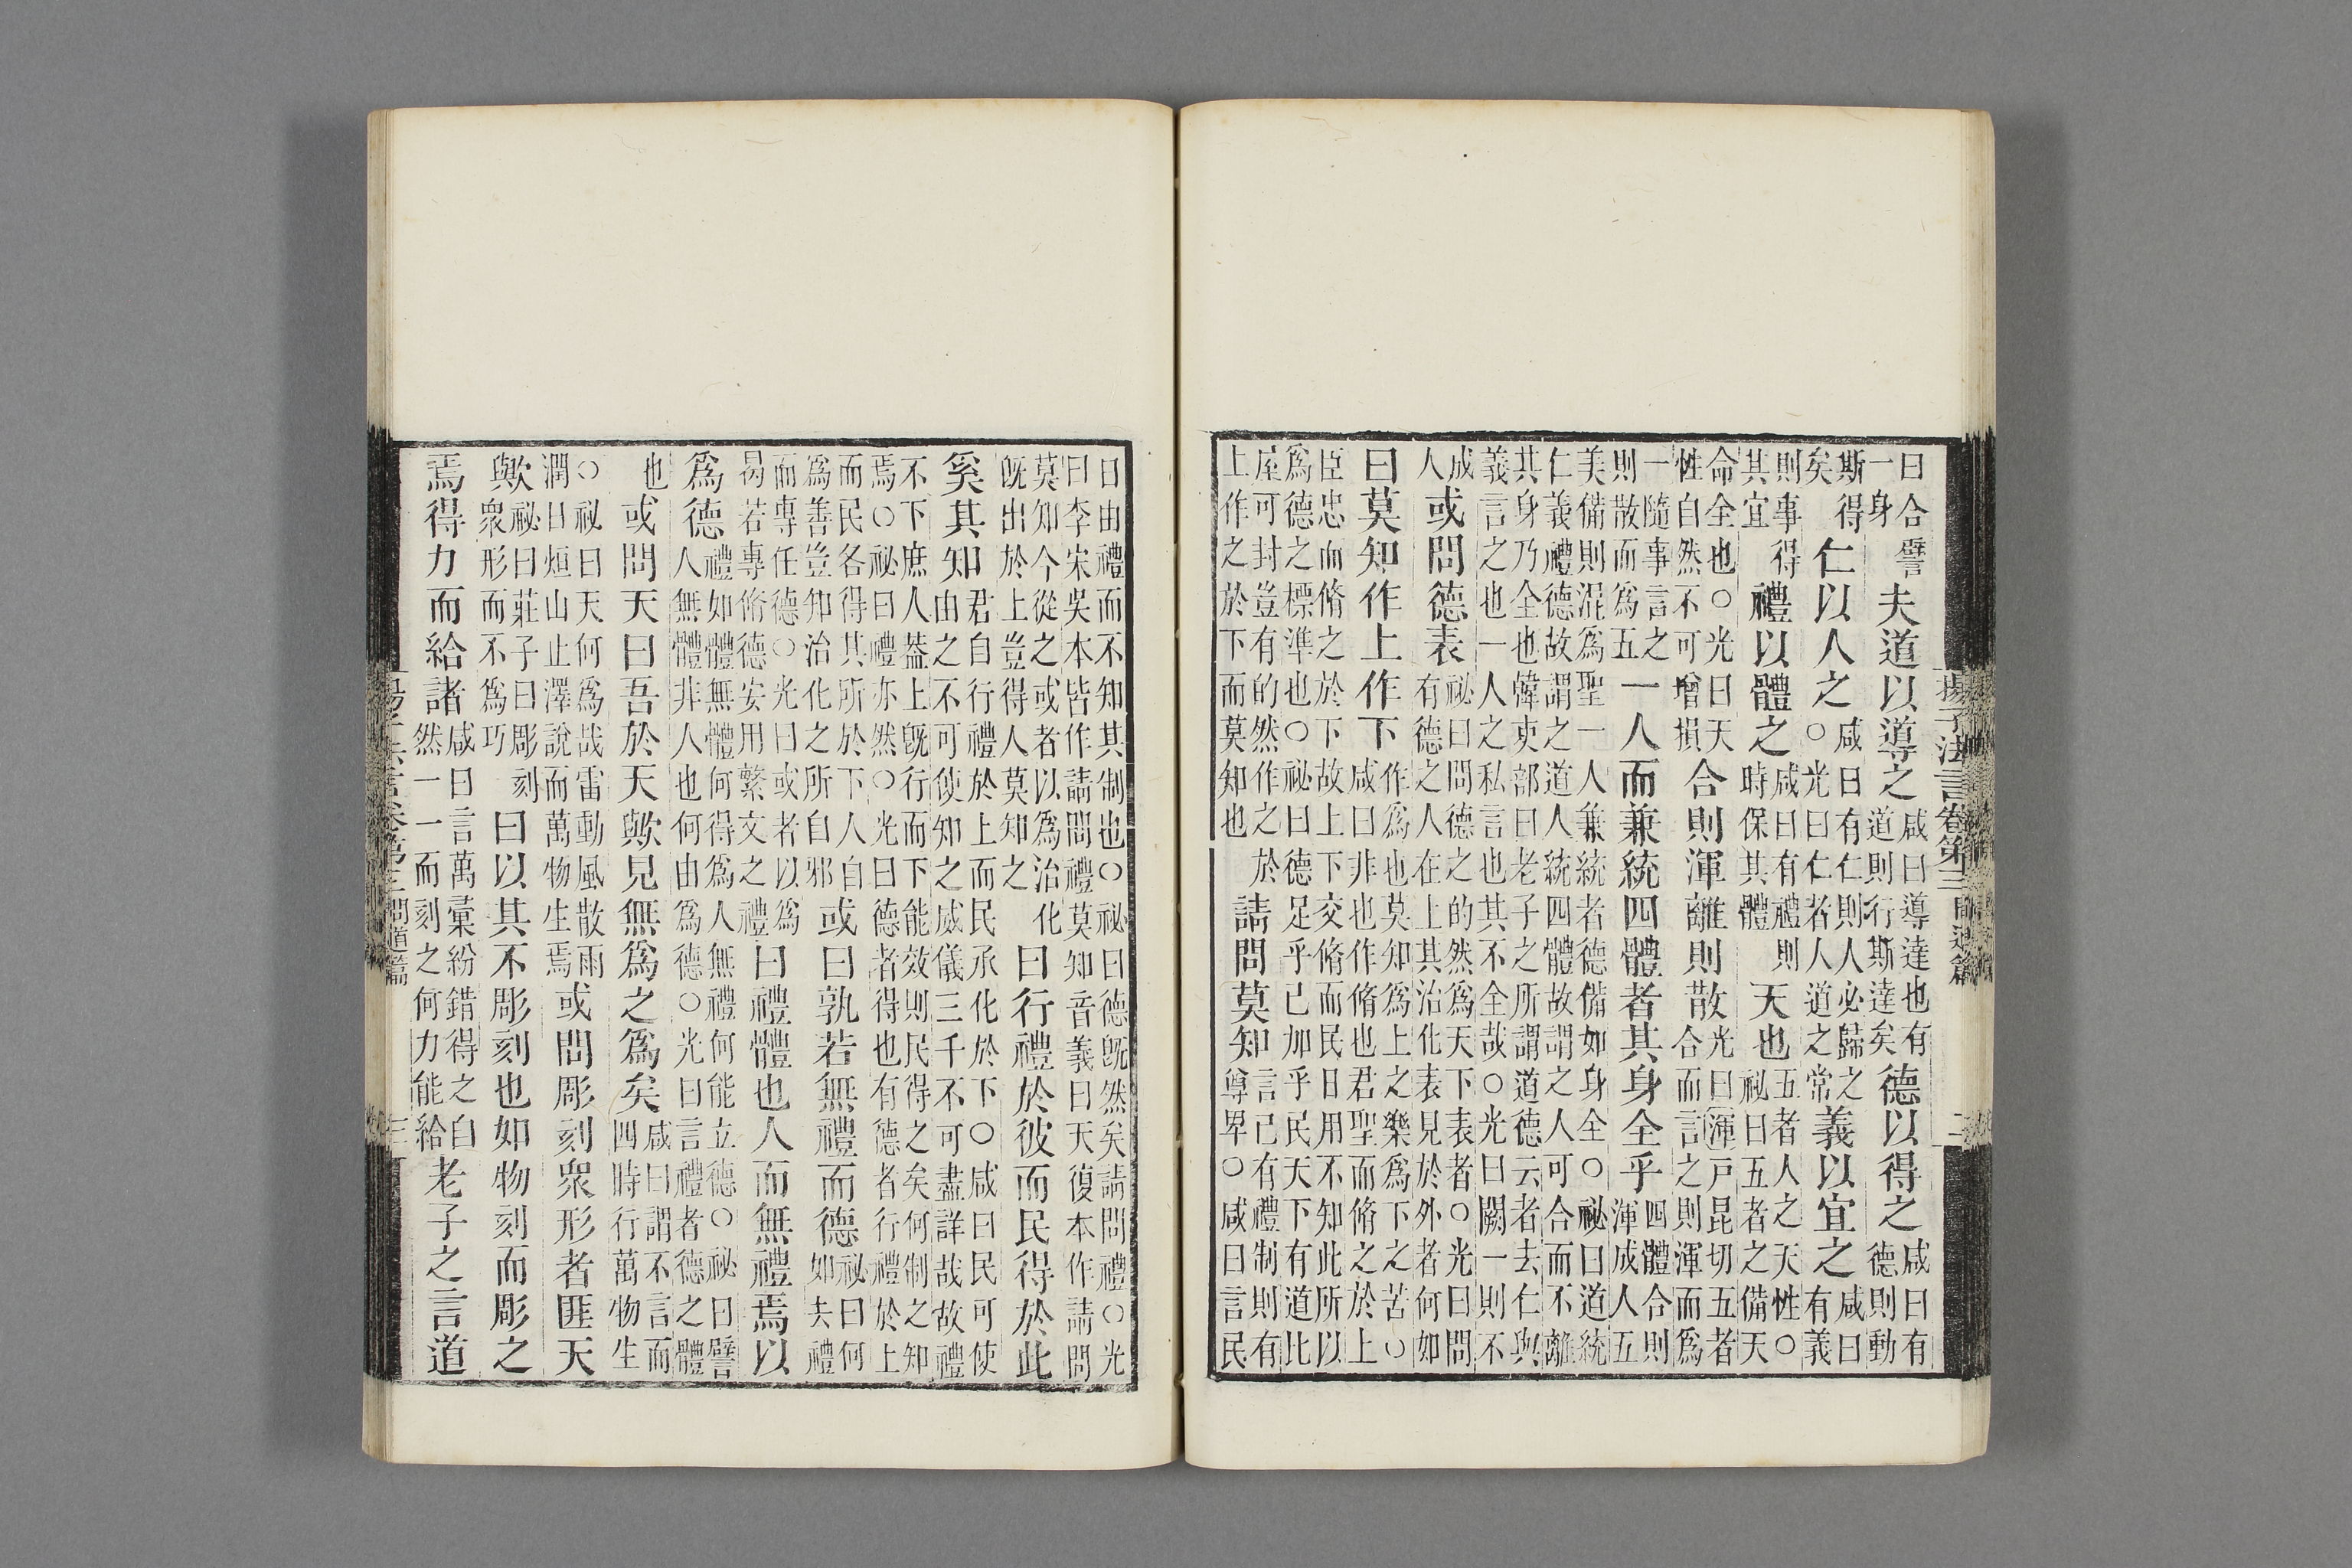 曰合譬一身夫道以導之咸曰導達也有道則行斯達矣德以得之咸曰有德則動
斯得矣仁以人之咸曰有仁則人必歸之○光曰仁者人道之常義以宜之咸曰有義
則事得其宜禮以體之咸曰有禮則時保其體天也五者人之天性○祕曰五者之備天
命全也○光曰天性自然不可增損合則渾離則散光曰渾戸昆切五者合而言之則渾而爲
一隨事言之則散而爲五一人而兼統四體者其身全乎四體合則渾成人五
美備則混爲聖一人兼統者德備如身全○祕曰道統仁義禮德故謂之道人統四體故謂之人可合而不離
其身乃全也韓吏部曰老子之所謂道德云者去仁與義言之也一人之私言也其不全哉○光曰闕一則不
成人或問德表祕曰問德之的然爲天下表者○光曰問有德之人在上其治化表見於外者何如
曰莫知作上作下作爲也莫知爲上之樂爲下之苦○咸曰非也作脩也君聖而脩之於上
臣忠而脩之於下故上下交脩而民日用不知此所以爲德之標準也○祕曰德足乎己加乎民天下有道比
屋可封豈有的然作之於上作之於下而莫知也請問莫知言己有禮制則有尊卑○咸曰言民
揚子法言卷第三 問道篇 二
日由禮而不知其制也○祕曰德既然矣請問禮○光曰李宋吳本皆作請問禮莫知音義曰天復本作請問
莫知今從之或者以爲治化既出於上豈得人莫知之曰行禮於彼而民得於此
奚其知君自行禮於上而民承化於下○咸曰民可使由之不可使知之威儀三千不可盡詳故哉故禮
不下庶人葢上既行而下能效則民得之矣何制之知焉○祕曰禮亦然○光曰德者得也有德者行禮於上
而民各得其所於下人自爲善豈知治化之所自邪或曰孰若無禮而德祕曰何如夫禮
而專任德○光曰或者以爲曷若專脩德安用繁文之禮曰禮體也人而無禮焉以
爲德禮如體無體何得爲人無禮何能立德○祕曰譬人無體非人也何由爲德○光曰言禮者德之體
也或問天曰吾於天歟見無爲之爲矣咸曰謂不言而四時行萬物生
○祕曰天何爲哉雷動風散雨潤日烜山止澤說而萬物生焉或問彫刻衆形者匪天
歟祕曰莊子曰彫刻衆形而不爲巧曰以其不彫刻也如物刻而彫之
焉得力而給諸咸曰言萬彙紛錯得之自然一一而刻之何力能給老子之言道
揚子法言卷第三 問道篇 三